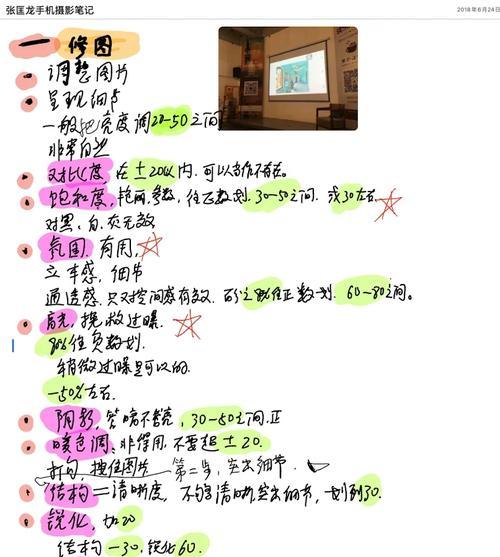 张匡龙手机摄影笔记
2018年6月24日
一 修图
调整图片
呈现细节
一般把亮度调20-50之间
非常自然
对比度,在±20以内,可以当作不存在。
饱和度,艳丽,参数,往正数划,30-50之间,或30左右
对黑,白,灰无效
氛围,有用,
立体感,细节
通透感,只对控间感有效, 往正数划,60-80之间。
高光,挽救过曝
80%往负数划
稍微过曝是可以的
-50%左右.
阴影,管暗不管亮,30-50之间,正
暖色调,非得用,不要超±20.
打勾,接住图片 第二步,突出细节.
结构=清晰度,不够清晰,突出细节,划到30.
锐化,加20
结构-30,锐化60.